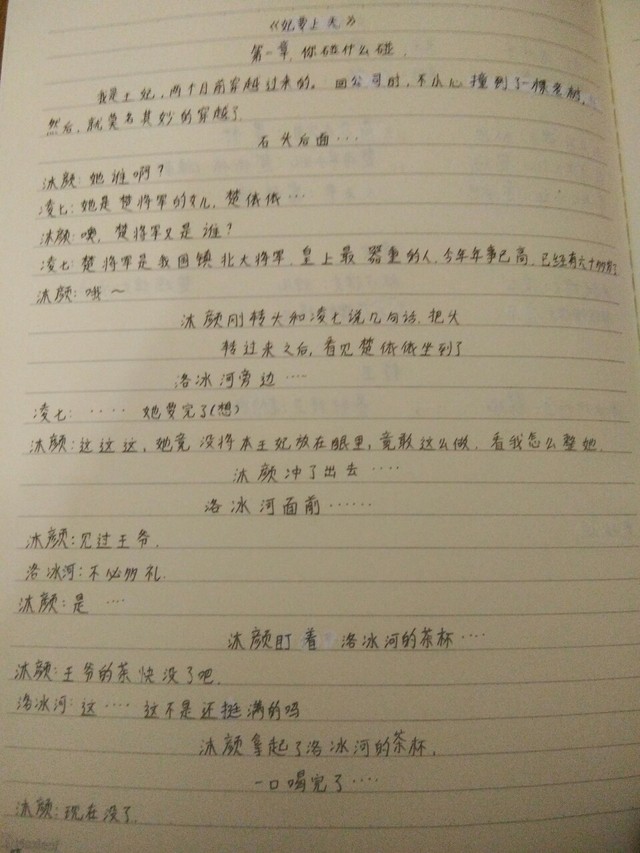 《妃要上天》
第一章 你碰什么碰
我是王妃，两个月前穿越过来的。回公司时，不小心撞到了一棵老树，
然后，就莫名其妙的穿越了
石头后面···
沐颜：她谁啊？
凌七：她是楚将军的女儿，楚依依···
沐颜：噢，楚将军又是谁？
凌七：楚将军是我国镇北大将军，皇上最器重的人，今年年事已高，已经有六十
沐颜：哦～
沐颜刚转头和凌七说几句话，把头
转过来之后，看见楚依依坐到了
洛冰河旁边····
凌七：····她要完了(想)
沐颜：这这这，她竟没将本王妃放在眼里，竟敢这么做，看我怎么整她.
沐颜冲了出去····
洛冰河面前······
沐颜：见过王爷.
洛冰河：不必多礼.
沐颜：是····
沐颜盯着洛冰河的茶杯····
沐颜：王爷的茶快没了吧.
洛冰河：这····这不是还挺满的吗
沐颜拿起了洛冰河的茶杯，
一口喝完了····
沐颜：现在没了.